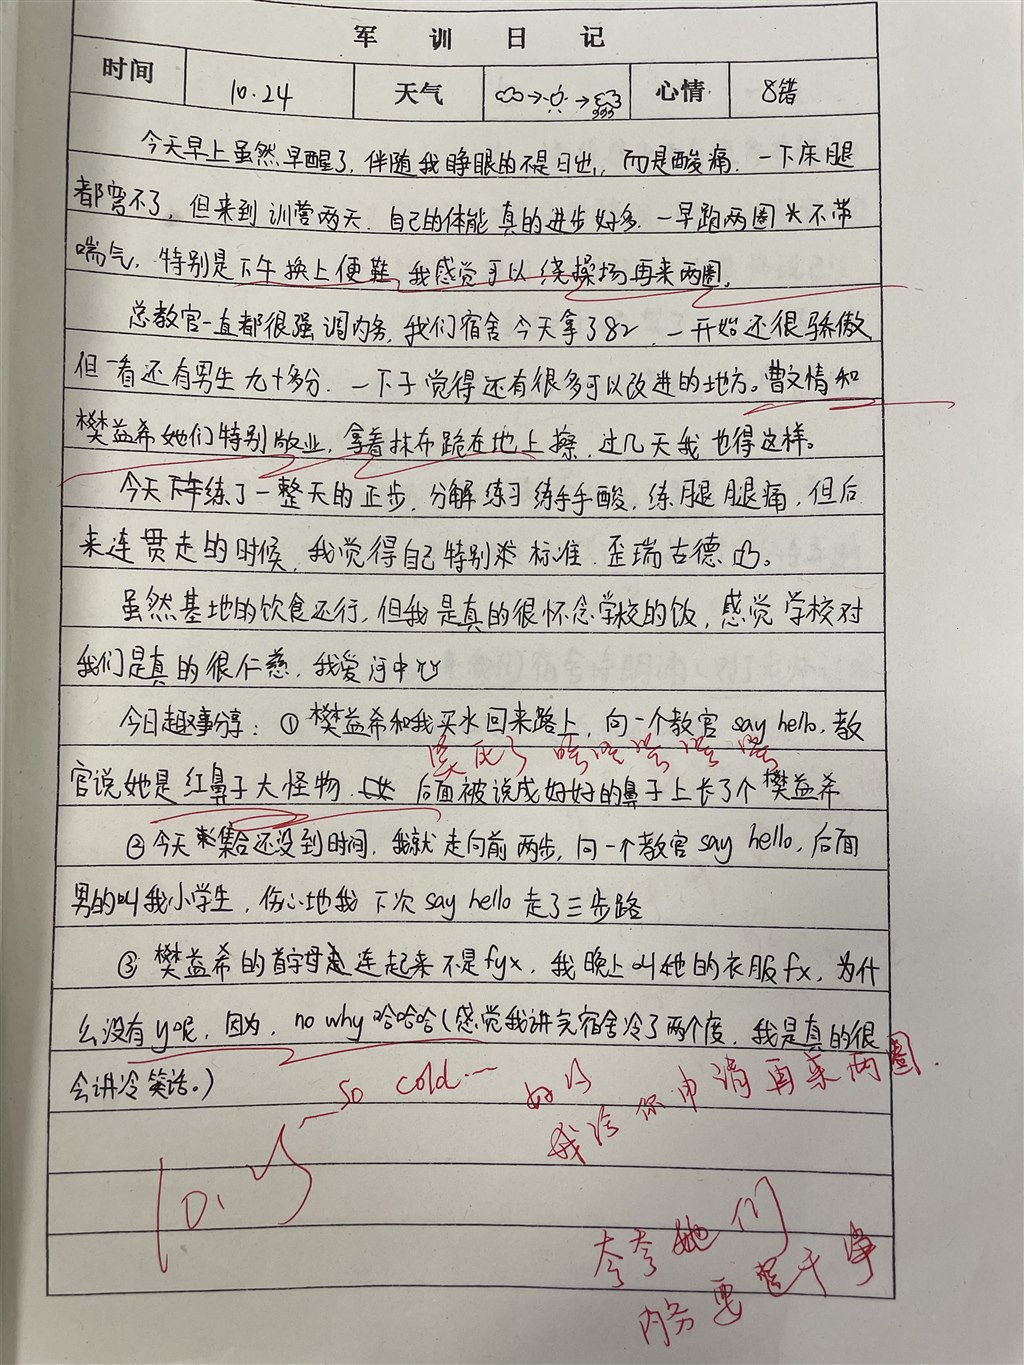 军训日记
时间 10.24 天气 心情 8错
今天早上虽然早醒了,伴随我睁眼的不是日出,而是酸痛.一下床腿
都弯不了,但来到训营两天.自己的体能真的进步好多.一早跑两圈大不带
喘气,特别是下午换上便鞋,我感觉可以绕操场再来两圈,
总教官一直都很强调内务,我们宿舍今天拿了82,一开始还很骄傲
但一看还有男生九十多分.一下子觉得还有很多可以改进的地方。曹文情和
樊益希她们特别敬业,拿着抹布跪在地上擦,过几天我也得这样。
今天下午练了一整天的正步,分解练习练手手酸,练腿腿痛,但后
来连贯走的时候,我觉得自己特别标准.歪瑞古德。
虽然基地的饮食还行,但我是真的很怀念学校的饭,感觉学校对
我们是真的很仁慈,我爱河中
今日趣事分享:①樊益希和我买水回来路上,向一个教官say hello,教
笑死了 哈哈哈哈哈
官说她是红鼻子大怪物 后面被说成好好的鼻子上长了个樊益希
②今天集合还没到时间,我就走向前两步,向一个教官say hello,后面
男的叫我小学生,伤心地我下次say hello走了三步路
③樊益希的首字母连起来不是fyx,我晚上叫她的衣服fx,为什
么没有y呢,因为,no why哈哈哈(感觉我讲完宿舍冷了两个度,我是真的很
会讲冷笑话。)
so cold…
好的
我给你申请再来两圈.
10.25
夸夸她们
内务要 干净